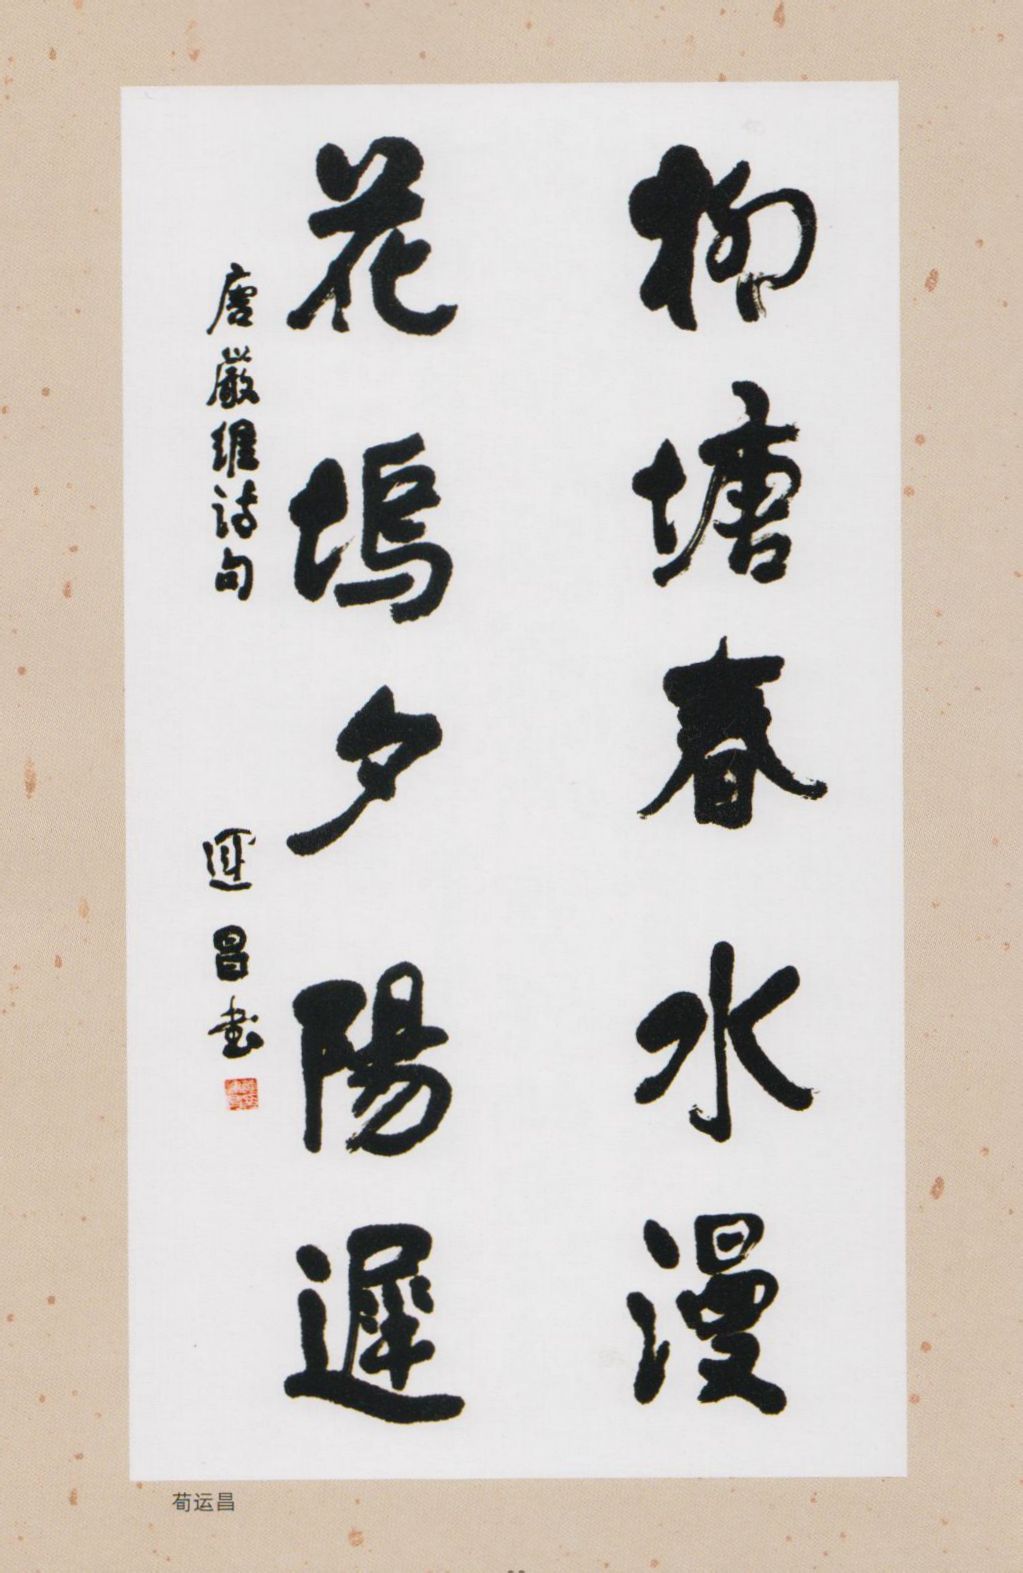 柳塘春水漫
花塢夕陽遲
唐嚴維詩句
運昌書
荀运昌